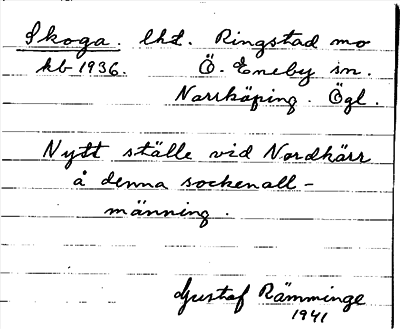 Skoga. lhd. Ringstad mo
kb 1936. Ö. Eneby sn.
Norrköping. Ögl.
Nytt ställe vid Nordkärr
å denna sockenall-
männing.
Gustaf Rämminge
1941